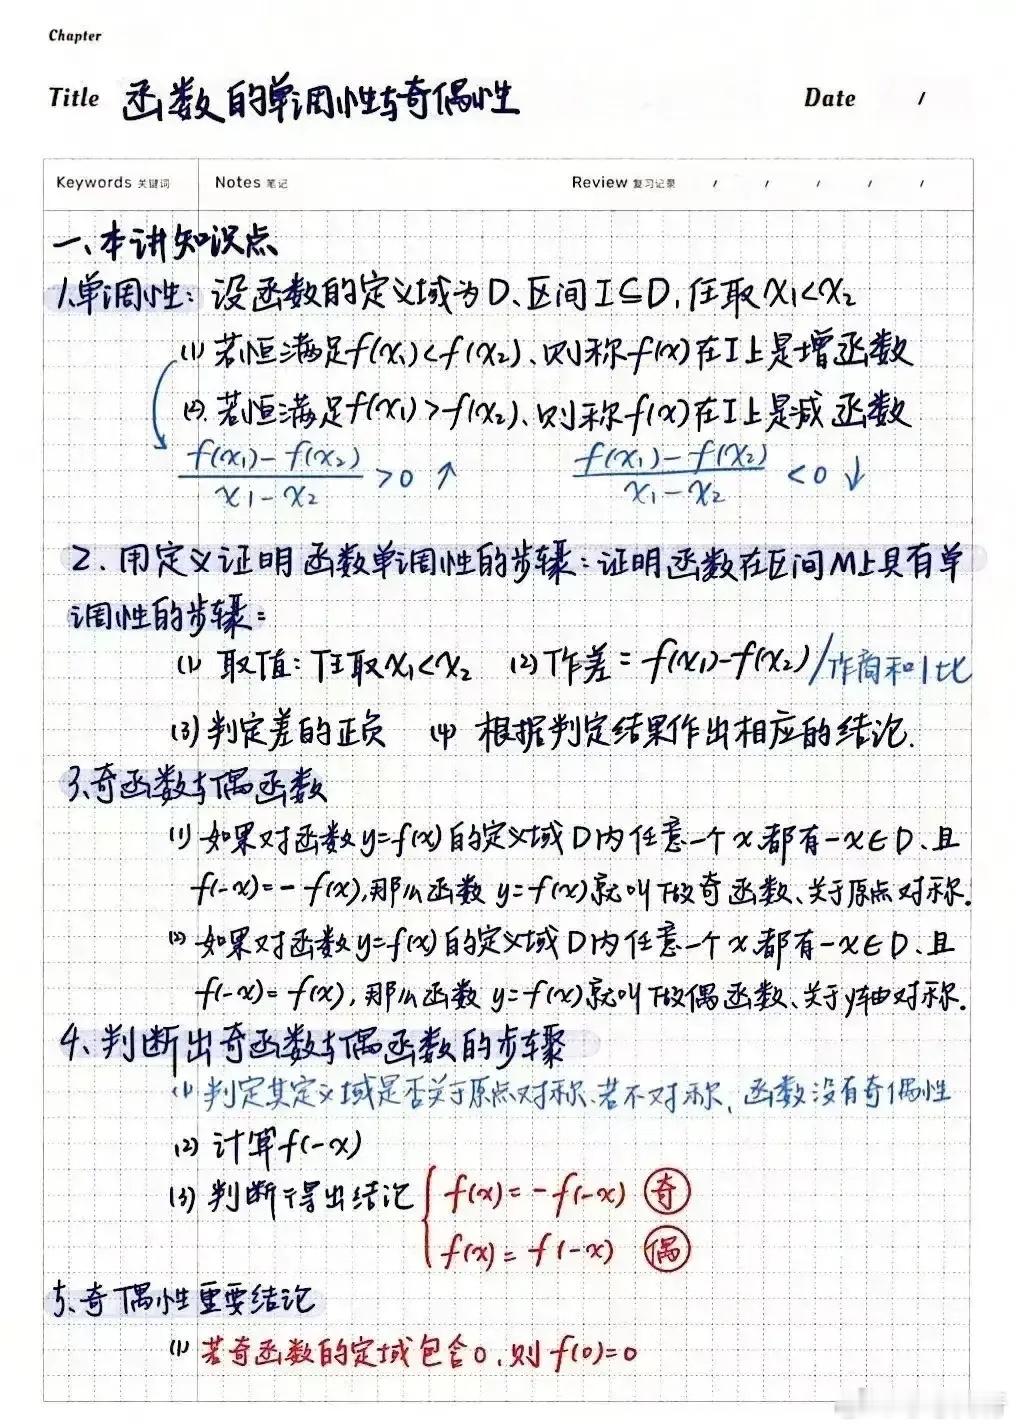 Chapter
Title 函数的单调性与奇偶性 Date /
Keywords 关键词 Notes 笔记 Review 复习记录 / / / / /
一、本讲知识点
1.单调性：设函数的定义域为D、区间I⊆D,任取x₁<x₂
(1) 若恒满足f(x₁)<f(x₂)、则称f(x)在I上是增函数
(2). 若恒满足f(x₁)>f(x₂)、则称f(x)在I上是减函数
f(x₁)-f(x₂) / x₁-x₂ >0 ↑ f(x₁)-f(x₂) / x₁-x₂ <0 ↓
2. 用定义证明函数单调性的步骤：证明函数在区间M上具有单
调性的步骤：
(1) 取值：任取x₁<x₂ (2) 作差：f(x₁)-f(x₂)/作商和1比
(3) 判定差的正负 (4) 根据判定结果作出相应的结论.
3.奇函数与偶函数
(1) 如果对函数y=f(x)的定义域D内任意一个x都有-x∈D、且
f(-x)=-f(x),那么函数y=f(x)就叫做奇函数、关于原点对称.
(2) 如果对函数y=f(x)的定义域D内任意一个x都有-x∈D、且
f(-x)=f(x),那么函数y=f(x)就叫做偶函数、关于y轴对称.
4、判断出奇函数与偶函数的步骤
(1) 判定其定义域是否关于原点对称、若不对称、函数没有奇偶性
(2) 计算f(-x)
(3) 判断得出结论 { f(x)=-f(-x) 奇
f(x)=f(-x) 偶
5、奇偶性重要结论
(1) 若奇函数的定域包含0,则f(0)=0